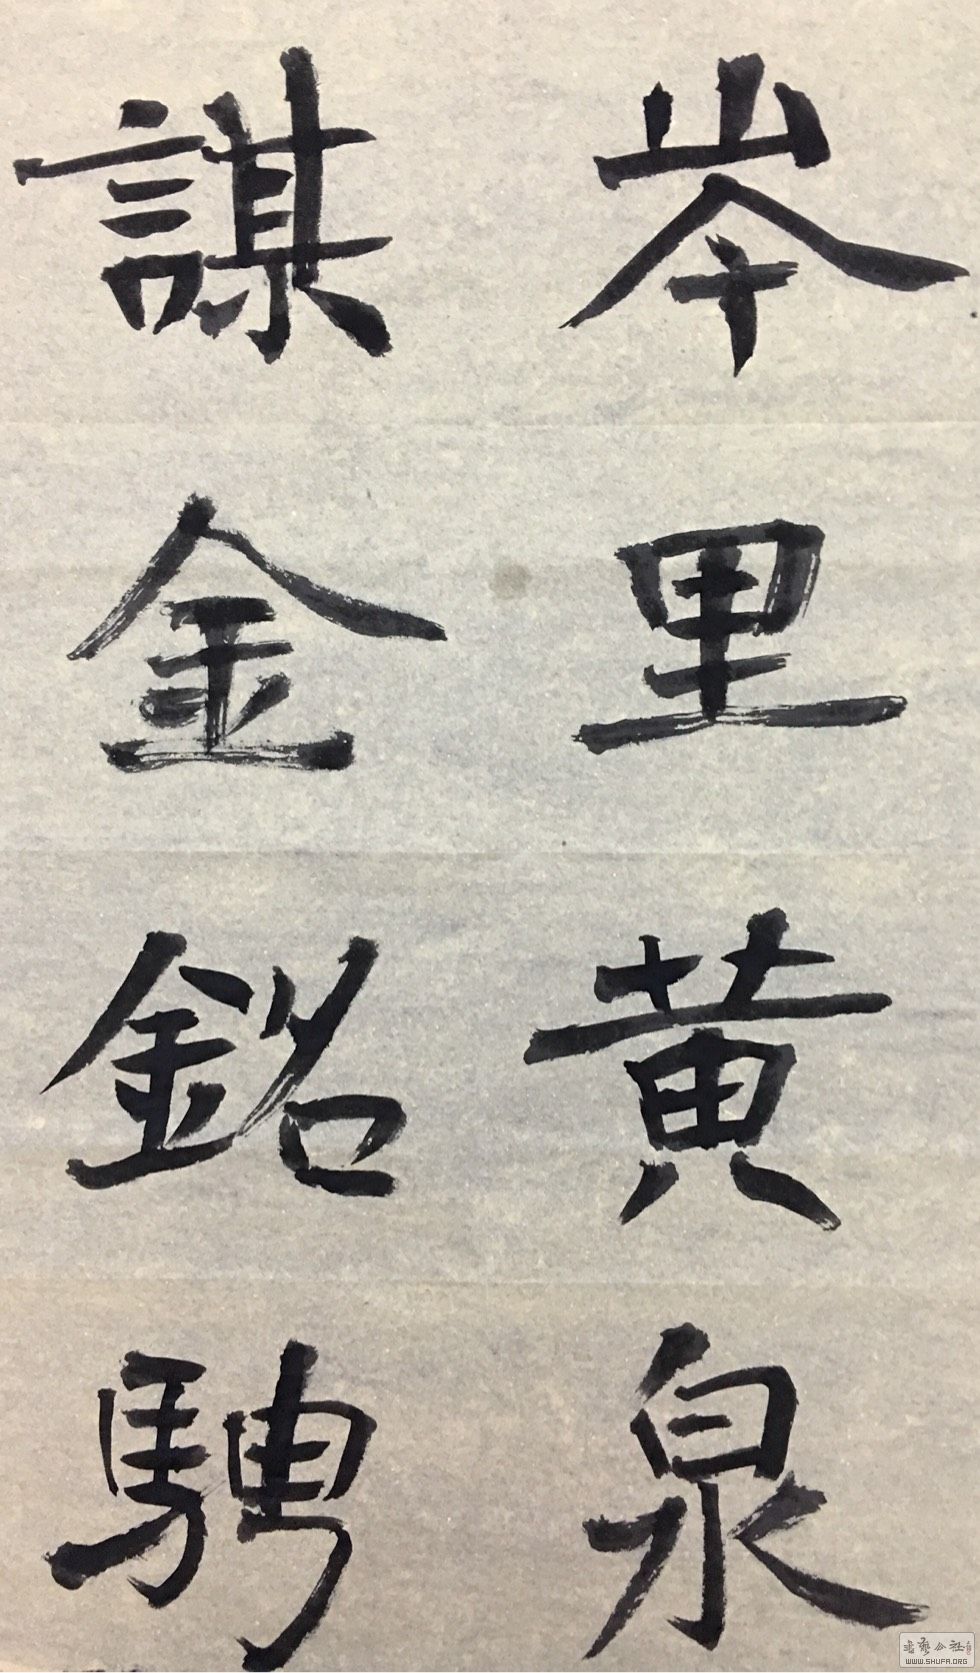 岑里黄泉
謀金銘騁
书艺公社
WWW.SHUFA.ORG